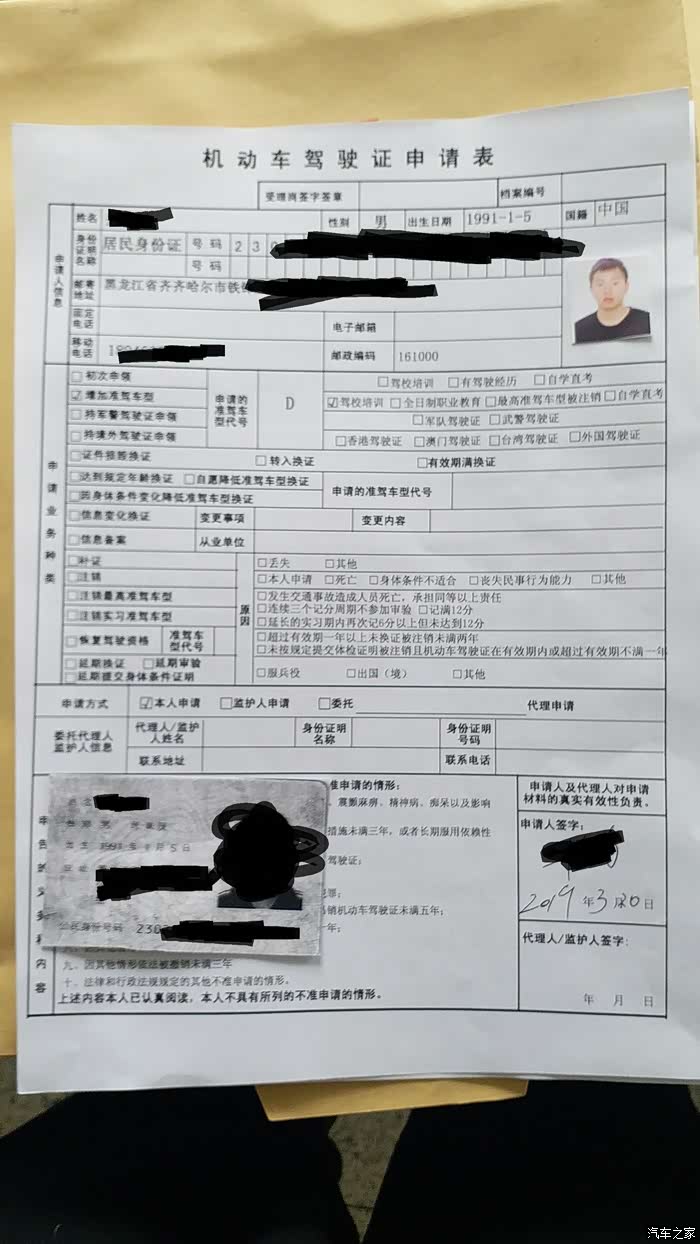 机动车驾驶证申请表
受理岗签字签章 档案编号
姓名 性别 男 出生日期 1991-1-5 国籍 中国
身份证明名称 居民身份证 号码 230
号码
申请人信息
邮寄地址 黑龙江省齐齐哈尔市铁
固定电话 电子邮箱
移动电话 邮政编码 161000
申请业务种类
□初次申领 □驾校培训 □有驾驶经历 □自学直考
☑增加准驾车型 申请的准驾车型代号 D ☑驾校培训 □全日制职业教育 □最高准驾车型被注销 □自学直考
□持军警驾驶证申领 □军队驾驶证 □武警驾驶证
□持境外驾驶证申领 □香港驾驶证 □澳门驾驶证 □台湾驾驶证 □外国驾驶证
□证件损毁换证 □转入换证 □有效期满换证
□达到规定年龄换证 □自愿降低准驾车型换证 申请的准驾车型代号
□因身体条件变化降低准驾车型换证
□信息变化换证 变更事项 变更内容
□信息备案 从业单位
□补证 原因 □丢失 □其他
□注销 □本人申请 □死亡 □身体条件不适合 □丧失民事行为能力 □其他
□注销最高准驾车型 □发生交通事故造成人员死亡，承担同等以上责任
□连续三个记分周期不参加审验 □记满12分
□注销实习准驾车型 □延长的实习期内再次记6分以上但未达到12分
□恢复驾驶资格 准驾车型代号 □超过有效期一年以上未换证被注销未满两年
□未按规定提交体检证明被注销且机动车驾驶证在有效期内或超过有效期不满一年
□延期换证 □延期审验 □服兵役 □出国（境） □其他
□延期提交身体条件证明
申请方式 ☑本人申请 □监护人申请 □委托 代理申请
委托代理人监护人信息 代理人/监护人姓名 身份证明名称 身份证明号码
联系地址 联系电话
准申请的情形：
、震颤麻痹、精神病、痴呆以及影响
措施未满三年，或者长期服用依赖性
驾驶证；
销机动车驾驶证未满五年；
年；
出生 1991 年 1 月 5 日
公民身份号码 230
九、因其他情形依法被撤销未满三年
十、法律和行政法规规定的其他不准申请的情形。
上述内容本人已认真阅读，本人不具有所列的不准申请的情形。
申请人及代理人对申请材料的真实有效性负责。
申请人签字：
2019 年 3 月 20 日
代理人/监护人签字：
年 月 日
汽车之家